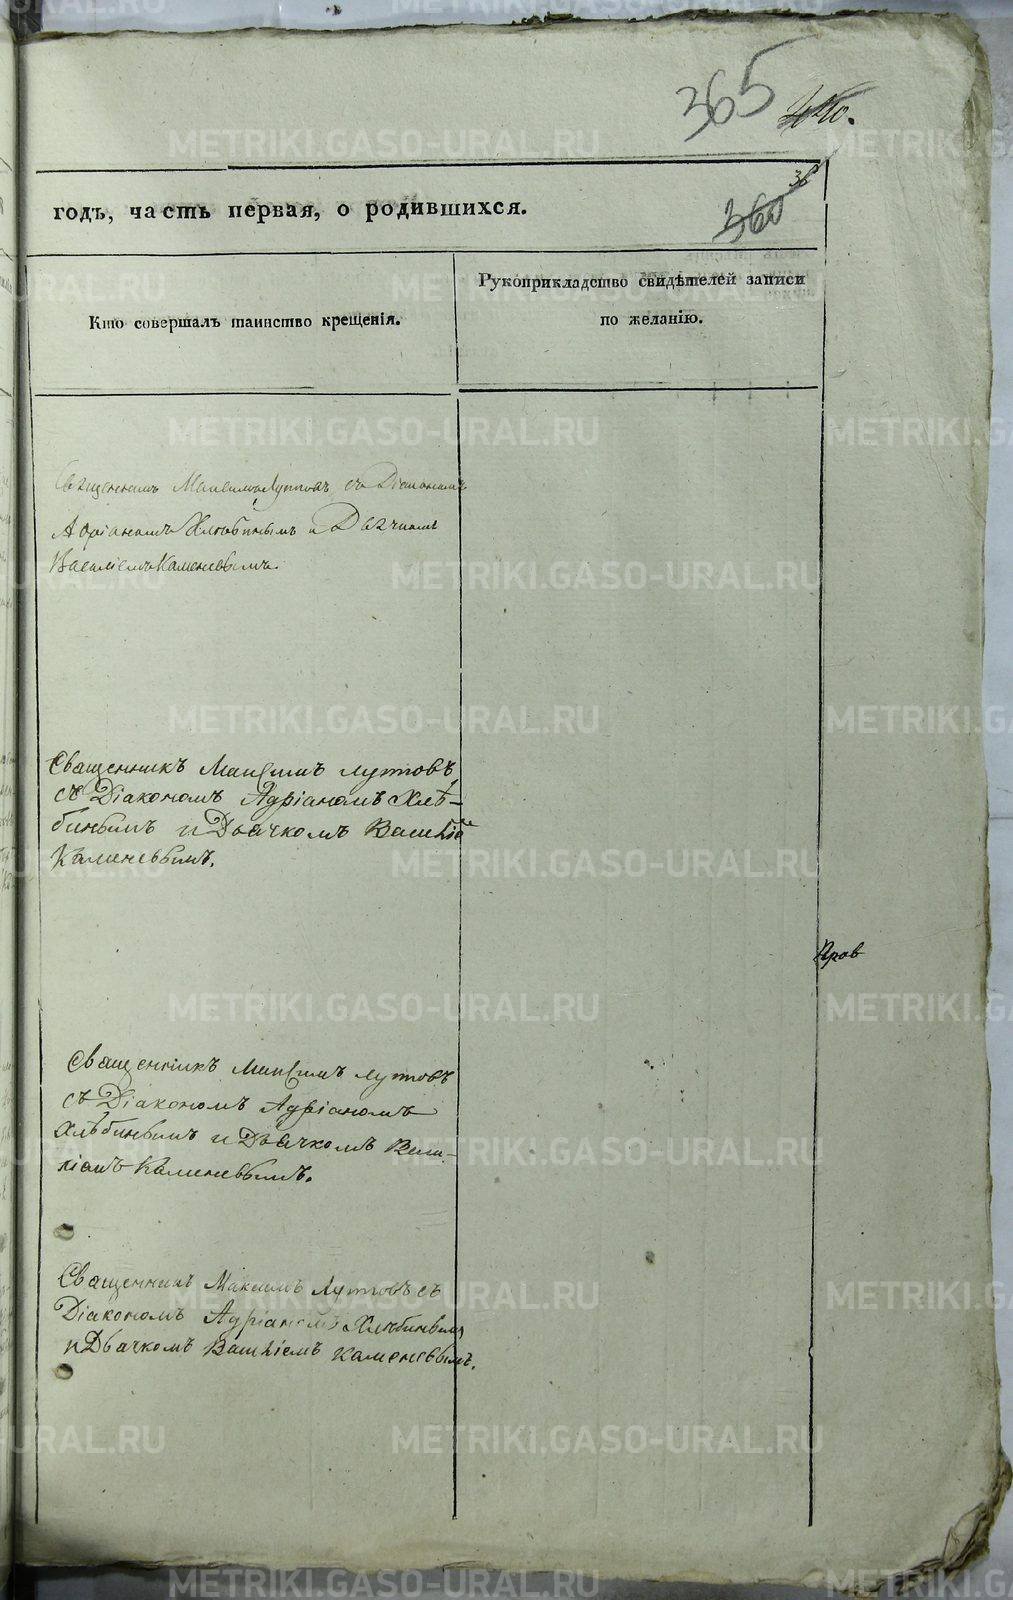 365
360
годъ, часть первая, о родившихся.
Кто совершалъ таинство крещенія.
Рукоприкладство свидѣтелей записи
по желанію.
Священникъ Максимъ Лутовъ съ Діакономъ
Адріаномъ Хлѣбинымъ и Дьячкомъ
Василіемъ Каменевымъ.
Священникъ Максимъ Лутовъ
съ Діакономъ Адріаномъ Хлѣ-
бинымъ и Дьячкомъ
Каменевымъ.
Священникъ Максимъ Лутовъ
съ Діакономъ Адріаномъ
Хлѣбинымъ и Дьячкомъ Васи-
ліемъ Каменевымъ.
Священникъ Максимъ Лутовъ съ
Діакономъ Адріаномъ Хлѣбинымъ
и Дьячкомъ Василіемъ Каменевымъ.
METRIKI.GASO-URAL.RU